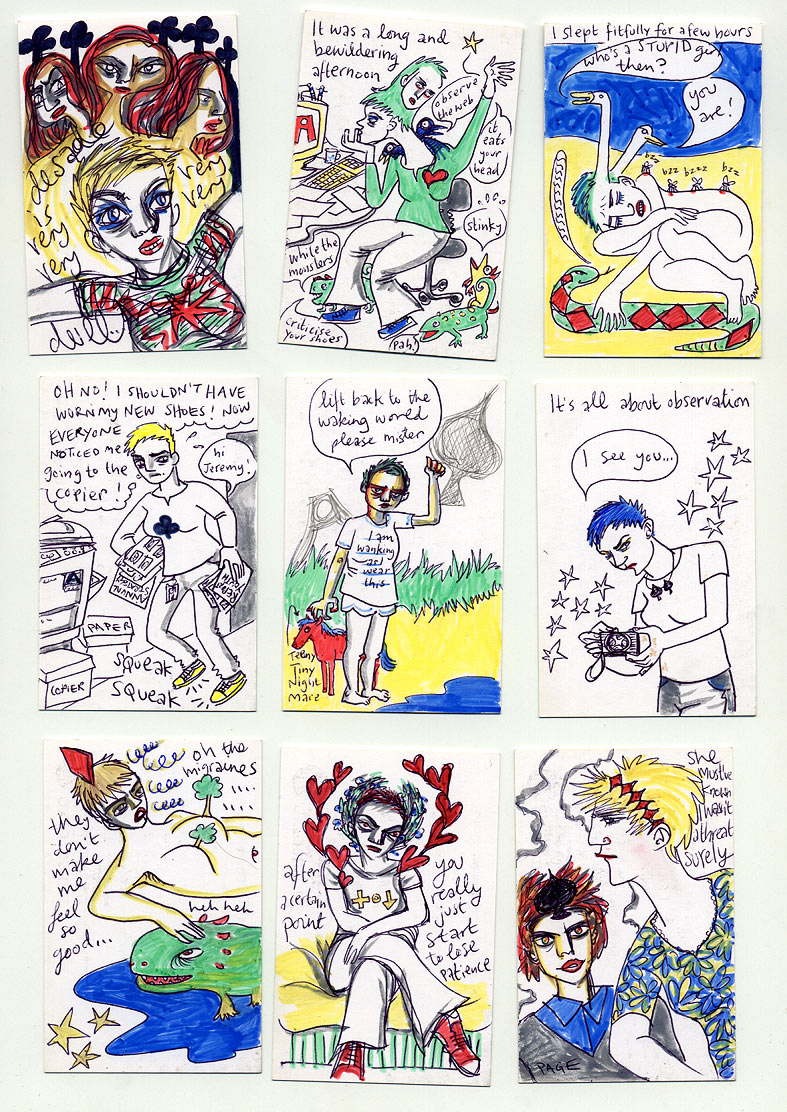 desside
is
very
very
very
very
dull...
It was a long and
bewildering
afternoon
A
observe
the web
it
eats
your
head
stinky
while the
monsters
criticise
your shoes
(pah!)
I slept fitfully for a few hours
who's a STUPID
then?
you
are!
bzz
bzz
bzzz
bzz
OH NO! I SHOULDN'T HAVE
WORN MY NEW SHOES! NOW
EVERYONE
NOTICED me
going to the
copier!
hi
Jeremy!
A
PAPER
COPIER
SQUEAK
SQUEAK
lift back to the
waking world
please mister
I am
wanking
as I
wear
this
Teeny
Tiny
Night
Mare
It's all about observation
I see you...
eeee
eee
eeee
eeee
oh the
migraines
....
they
don't
make
me
feel
so
good...
heh heh
after
a certain
point
you
really
just
start
to lose
patience
she
must've
known
I wasn't
a threat
surely
PAGE